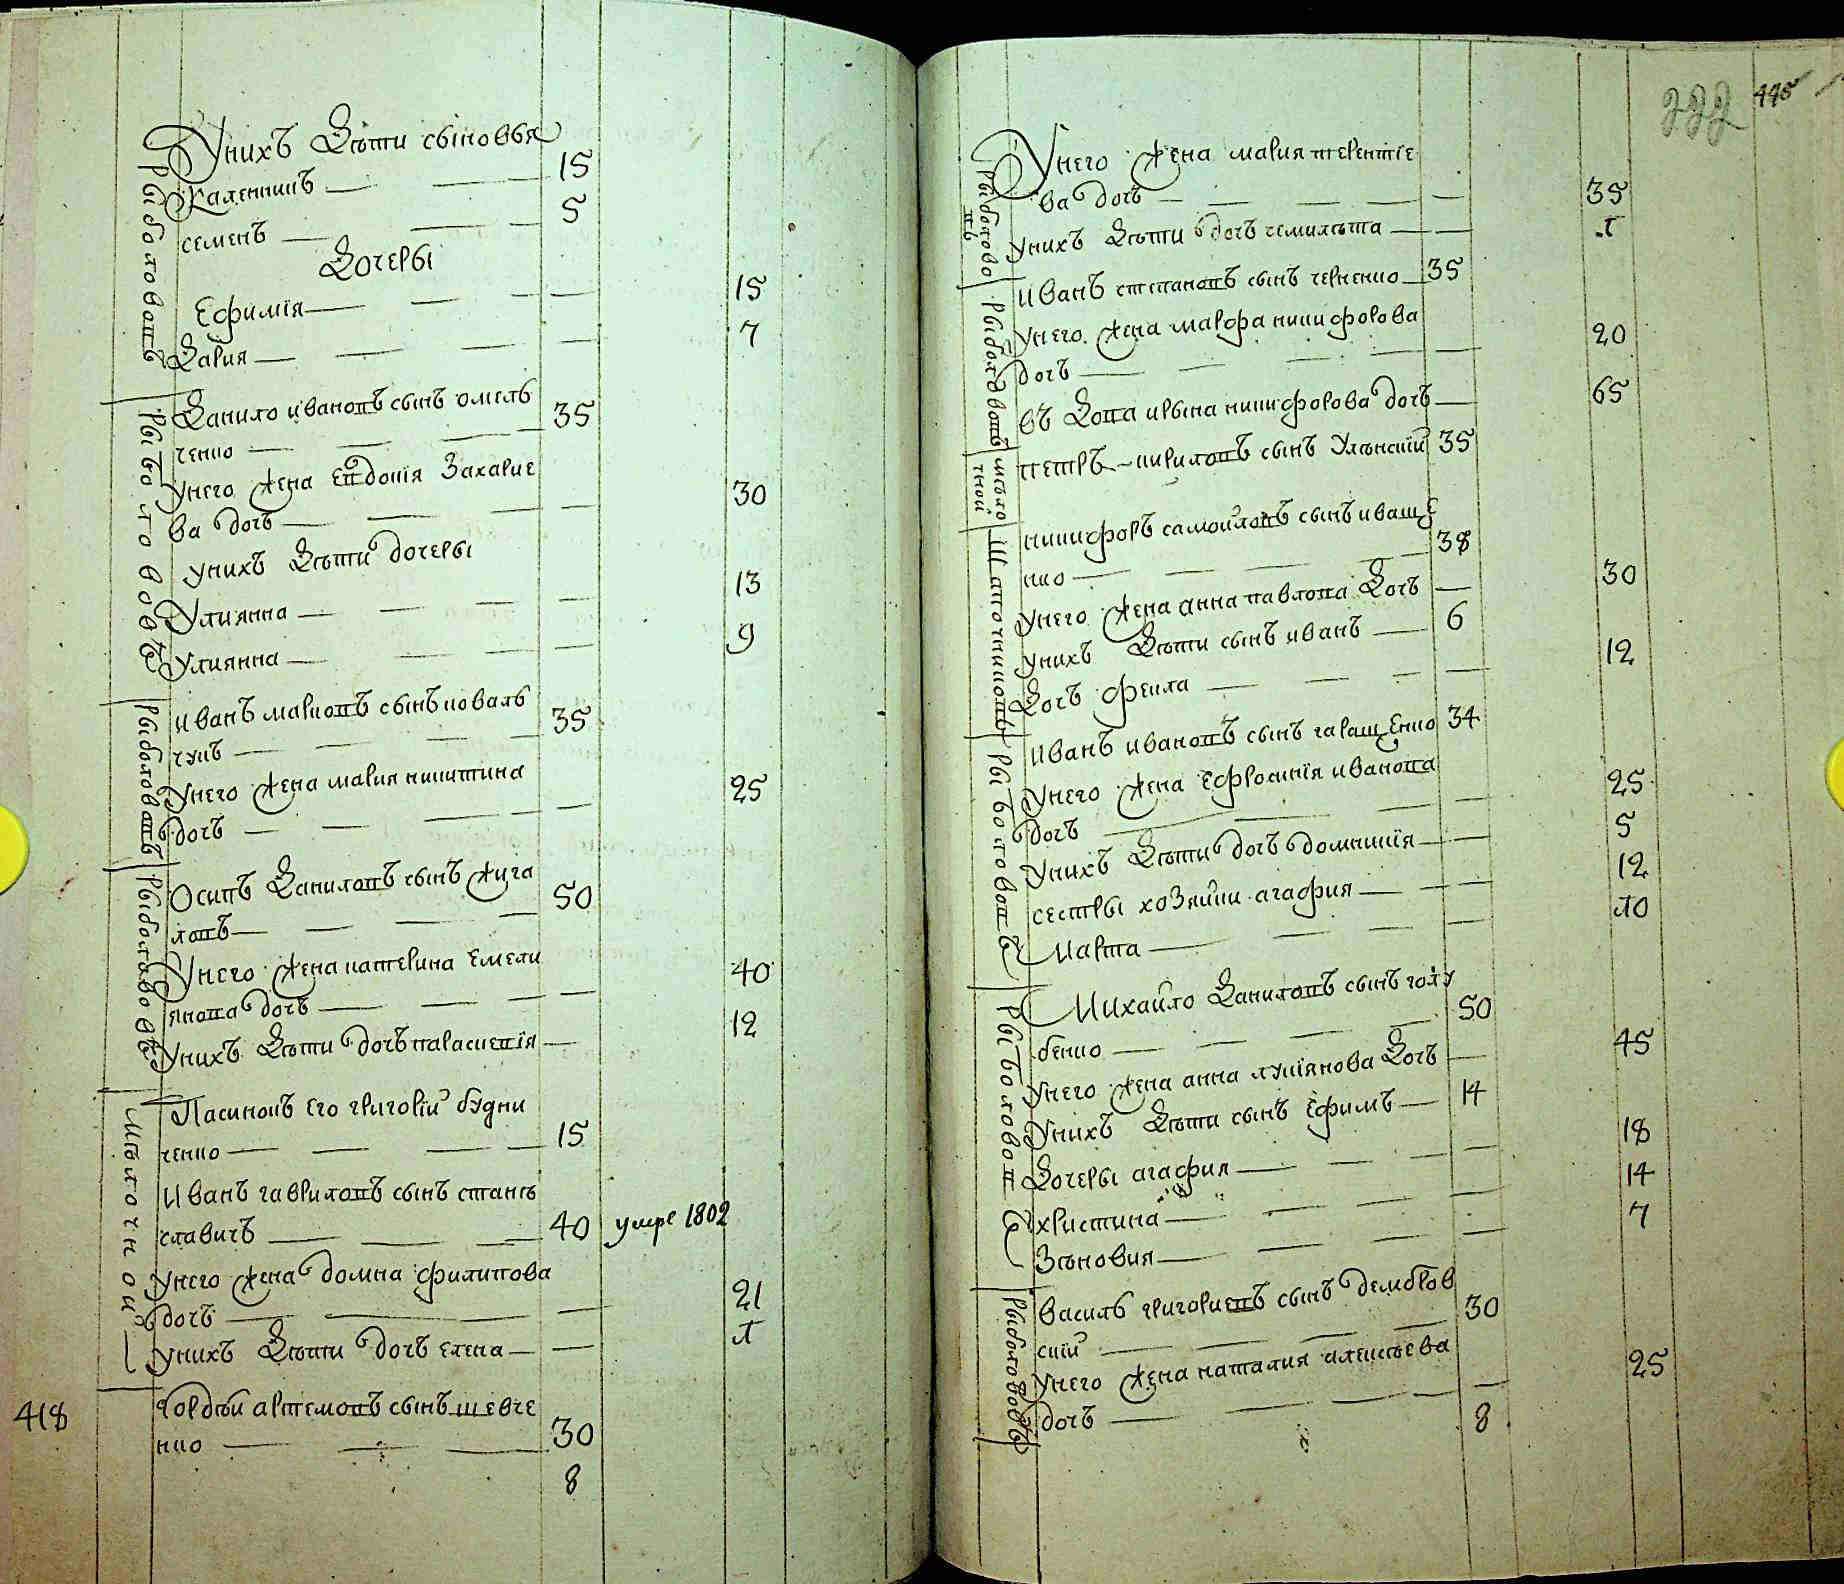 Рыболововъ
Унихъ Дѣти сыновья
Каленникъ — 15
семенъ — 5
Дочеры
Ефимія — 15
Дария — 7
Рыболововъ
Данило ивановъ сынъ омель
ченко — 35
Унего жена евдокія Захарие
ва дочь — 30
унихъ Дѣти дочеры
Улиянна — 13
Улиянна — 9
Рыболововъ
иванъ марковъ сынъ коваль
чукъ — 35
Унего жена мария никитина
дочь — 25
Рыболововъ
Осипъ Даниловъ сынъ жига
ловъ — 50
Унего жена катерина емели
янова дочь — 40
Унихъ Дѣти дочь параскевія — 12
Мѣлочной
Пасинокъ его григорій будни
ченко — 15
Иванъ гавриловъ сынъ станѣ
славичъ — 40 умре 1802
унего жена домна филипова
дочь — 21
унихъ Дѣти дочь елена — 1
418
гордѣй артемовъ сынъ шевче
нко — 30
8
222 445
Рыболово
въ
Унего жена мария терентїе
ва дочь — 35
унихъ Дѣти дочь гемилѣта — 1
Рыболововъ
иванъ степановъ сынъ черненко — 35
унего жена марфа никифорова
дочь — 20
въ Дова ирына никифорова дочь — 65
мѣло
чной
петръ кириловъ сынъ Улѣнскій 35
Шапочниковъ
никифоръ самойловъ сынъ иваще
нко — 38
унего жена анна павлова Дочь — 30
унихъ Дѣти сынъ иванъ — 6
Дочь фекла — 12
Рыболововъ
иванъ ивановъ сынъ гаращенко 34
унего жена Ефросинїя иванова
дочь — 25
унихъ Дѣти дочь домникія — 5
сестры хозяйки агафия — 12
Марта — 10
Рыболововъ
Михайло Даниловъ сынъ голу
бенко — 50
унего жена анна лукіянова Дочь — 45
Унихъ Дѣти сынъ ефимъ — 14
Дочеры агафия — 18
христина — 14
Зѣновия — 7
Рыболововъ
василь григориевъ сынъ дембров
скій — 30
унего жена наталия алексѣева
дочь — 25
8